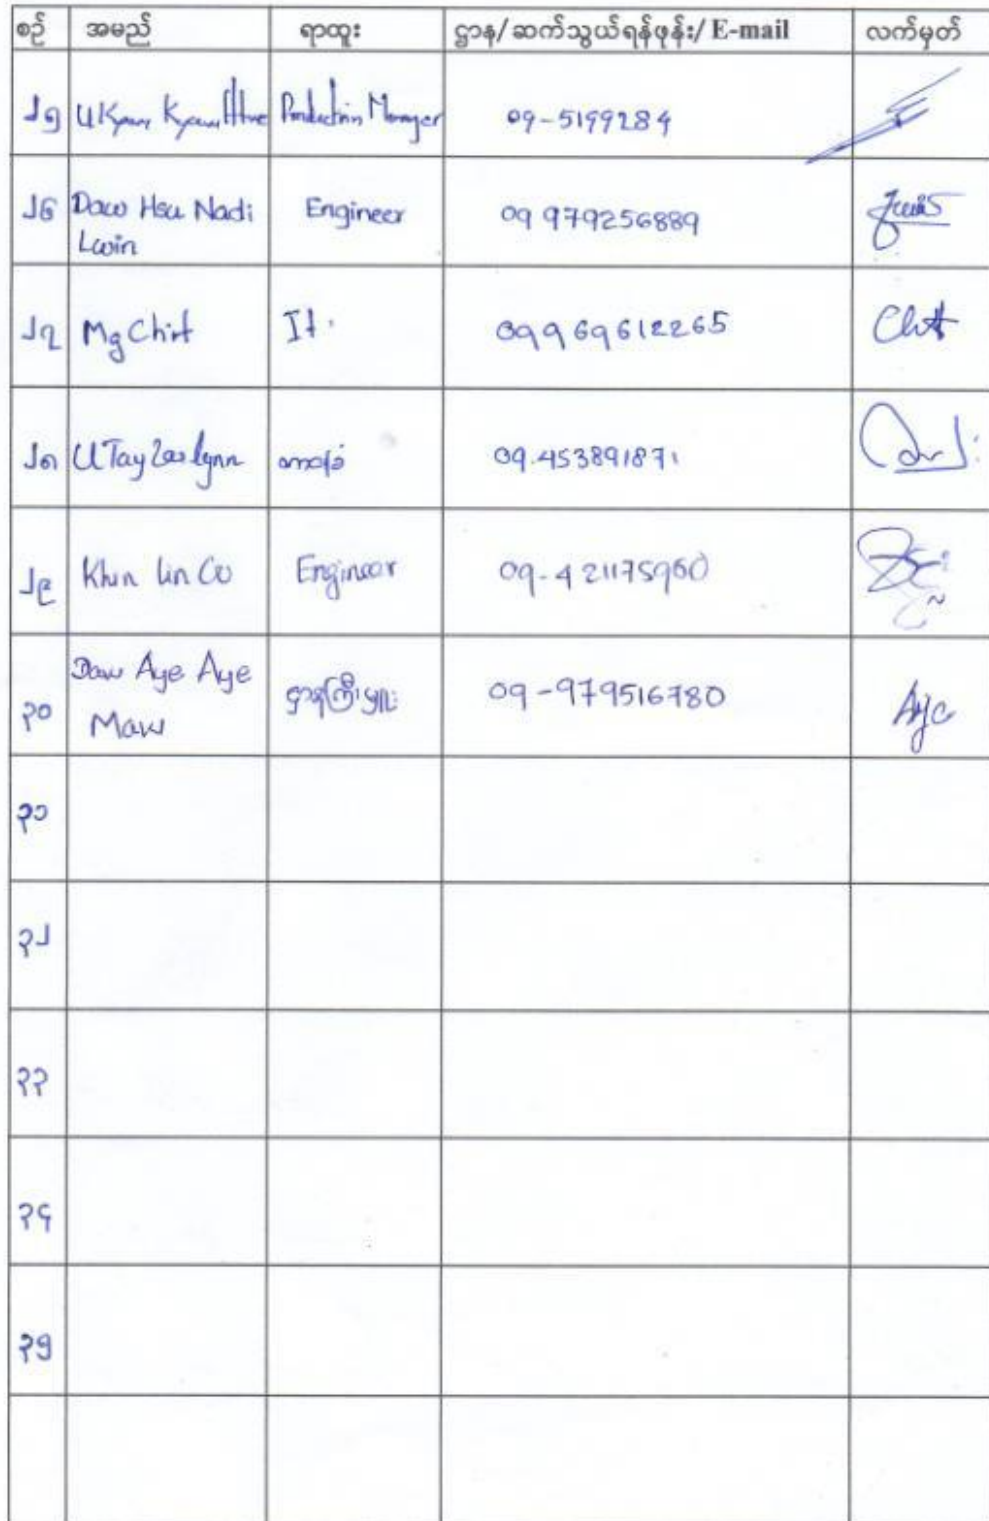 စဉ် အမည် ရာထူး ဌာန/ဆက်သွယ်ရန်ဖုန်း/ E-mail လက်မှတ်
၂၅ U Kyaw Kyaw Htwe Production Manager 09-5199284
၂၆ Daw Hsu Nadi Engineer 09 979256889
Lwin
၂၇ Mg Chit It. 09969612265 Chit
၂၈ U Tay Zar Lynn 09.453891871
၂၉ Khin Lin Co Engineer 09-421175960
Daw Aye Aye ဌာနကြီးမှူး 09-979516780 Aye
၃၀ Maw
၃၁
၃၂
၃၃
၃၄
၃၅